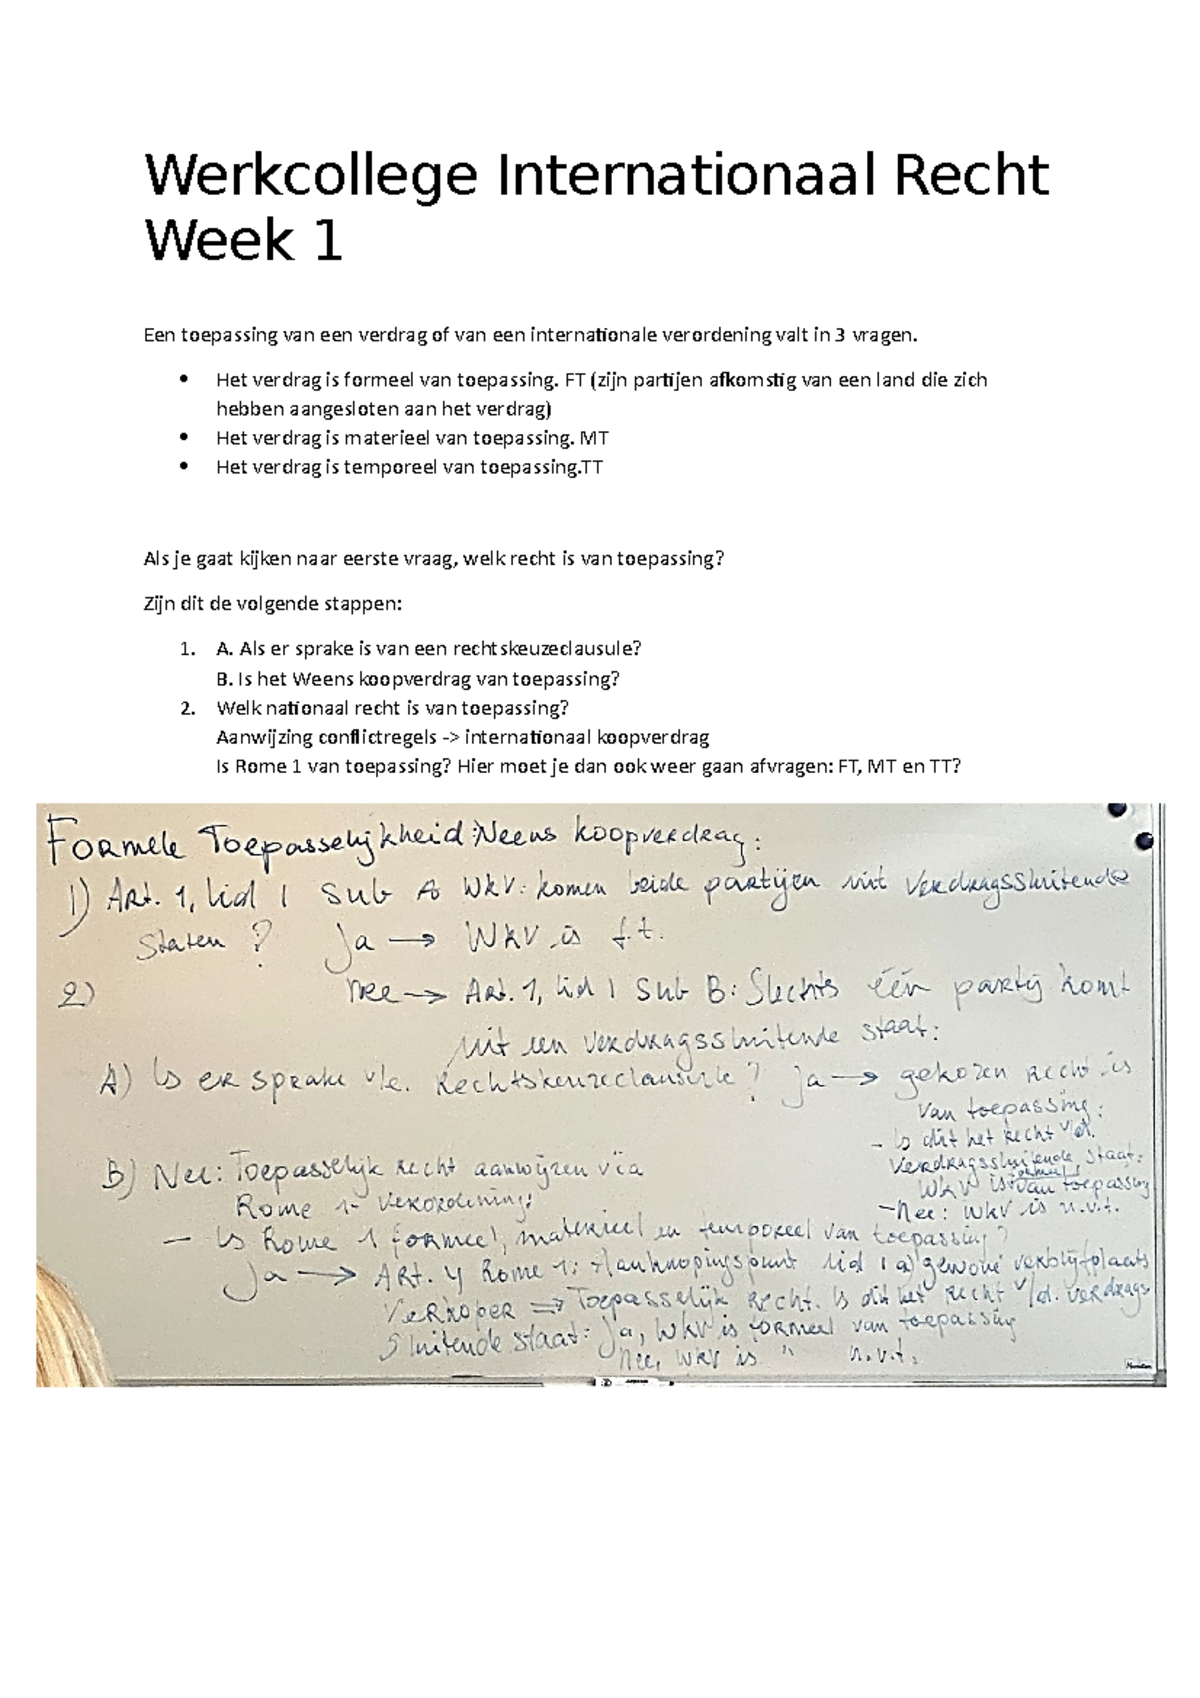 Werkcollege Internationaal Recht
Week 1
Een toepassing van een verdrag of van een internationale verordening valt in 3 vragen.
• Het verdrag is formeel van toepassing. FT (zijn partijen afkomstig van een land die zich
hebben aangesloten aan het verdrag)
• Het verdrag is materieel van toepassing. MT
• Het verdrag is temporeel van toepassing.TT
Als je gaat kijken naar eerste vraag, welk recht is van toepassing?
Zijn dit de volgende stappen:
1. A. Als er sprake is van een rechtskeuzeclausule?
B. Is het Weens koopverdrag van toepassing?
2. Welk nationaal recht is van toepassing?
Aanwijzing conflictregels -> internationaal koopverdrag
Is Rome 1 van toepassing? Hier moet je dan ook weer gaan afvragen: FT, MT en TT?
Formele Toepasselijkheid Weens koopverdrag:
1) Art. 1, lid 1 sub A WKV: komen beide partijen uit verdragssluitende
staten? Ja → WKV is f.t.
2) nee → Art. 1, lid 1 sub B: Slechts één partij komt
uit een verdragssluitende staat:
A) Is er sprake v/e. Rechtskeuzeclausule? Ja → gekozen recht is
van toepassing:
- Is dit het recht v/d.
verdragssluitende staat:
formeel
WKV is van toepassing
- Nee: WKV is n.v.t.
B) Nee: Toepasselijk recht aanwijzen via
Rome 1- verordening:
- Is Rome 1 formeel, materieel en temporeel van toepassing?
Ja → Art. 4 Rome 1: Aanknopingspunt lid 1 a) gewone verblijfplaats
verkoper ⇒ Toepasselijk recht. Is dit het recht v/d. verdrags-
sluitende staat: Ja, WKV is formeel van toepassing
Nee, WKV is " n.v.t.